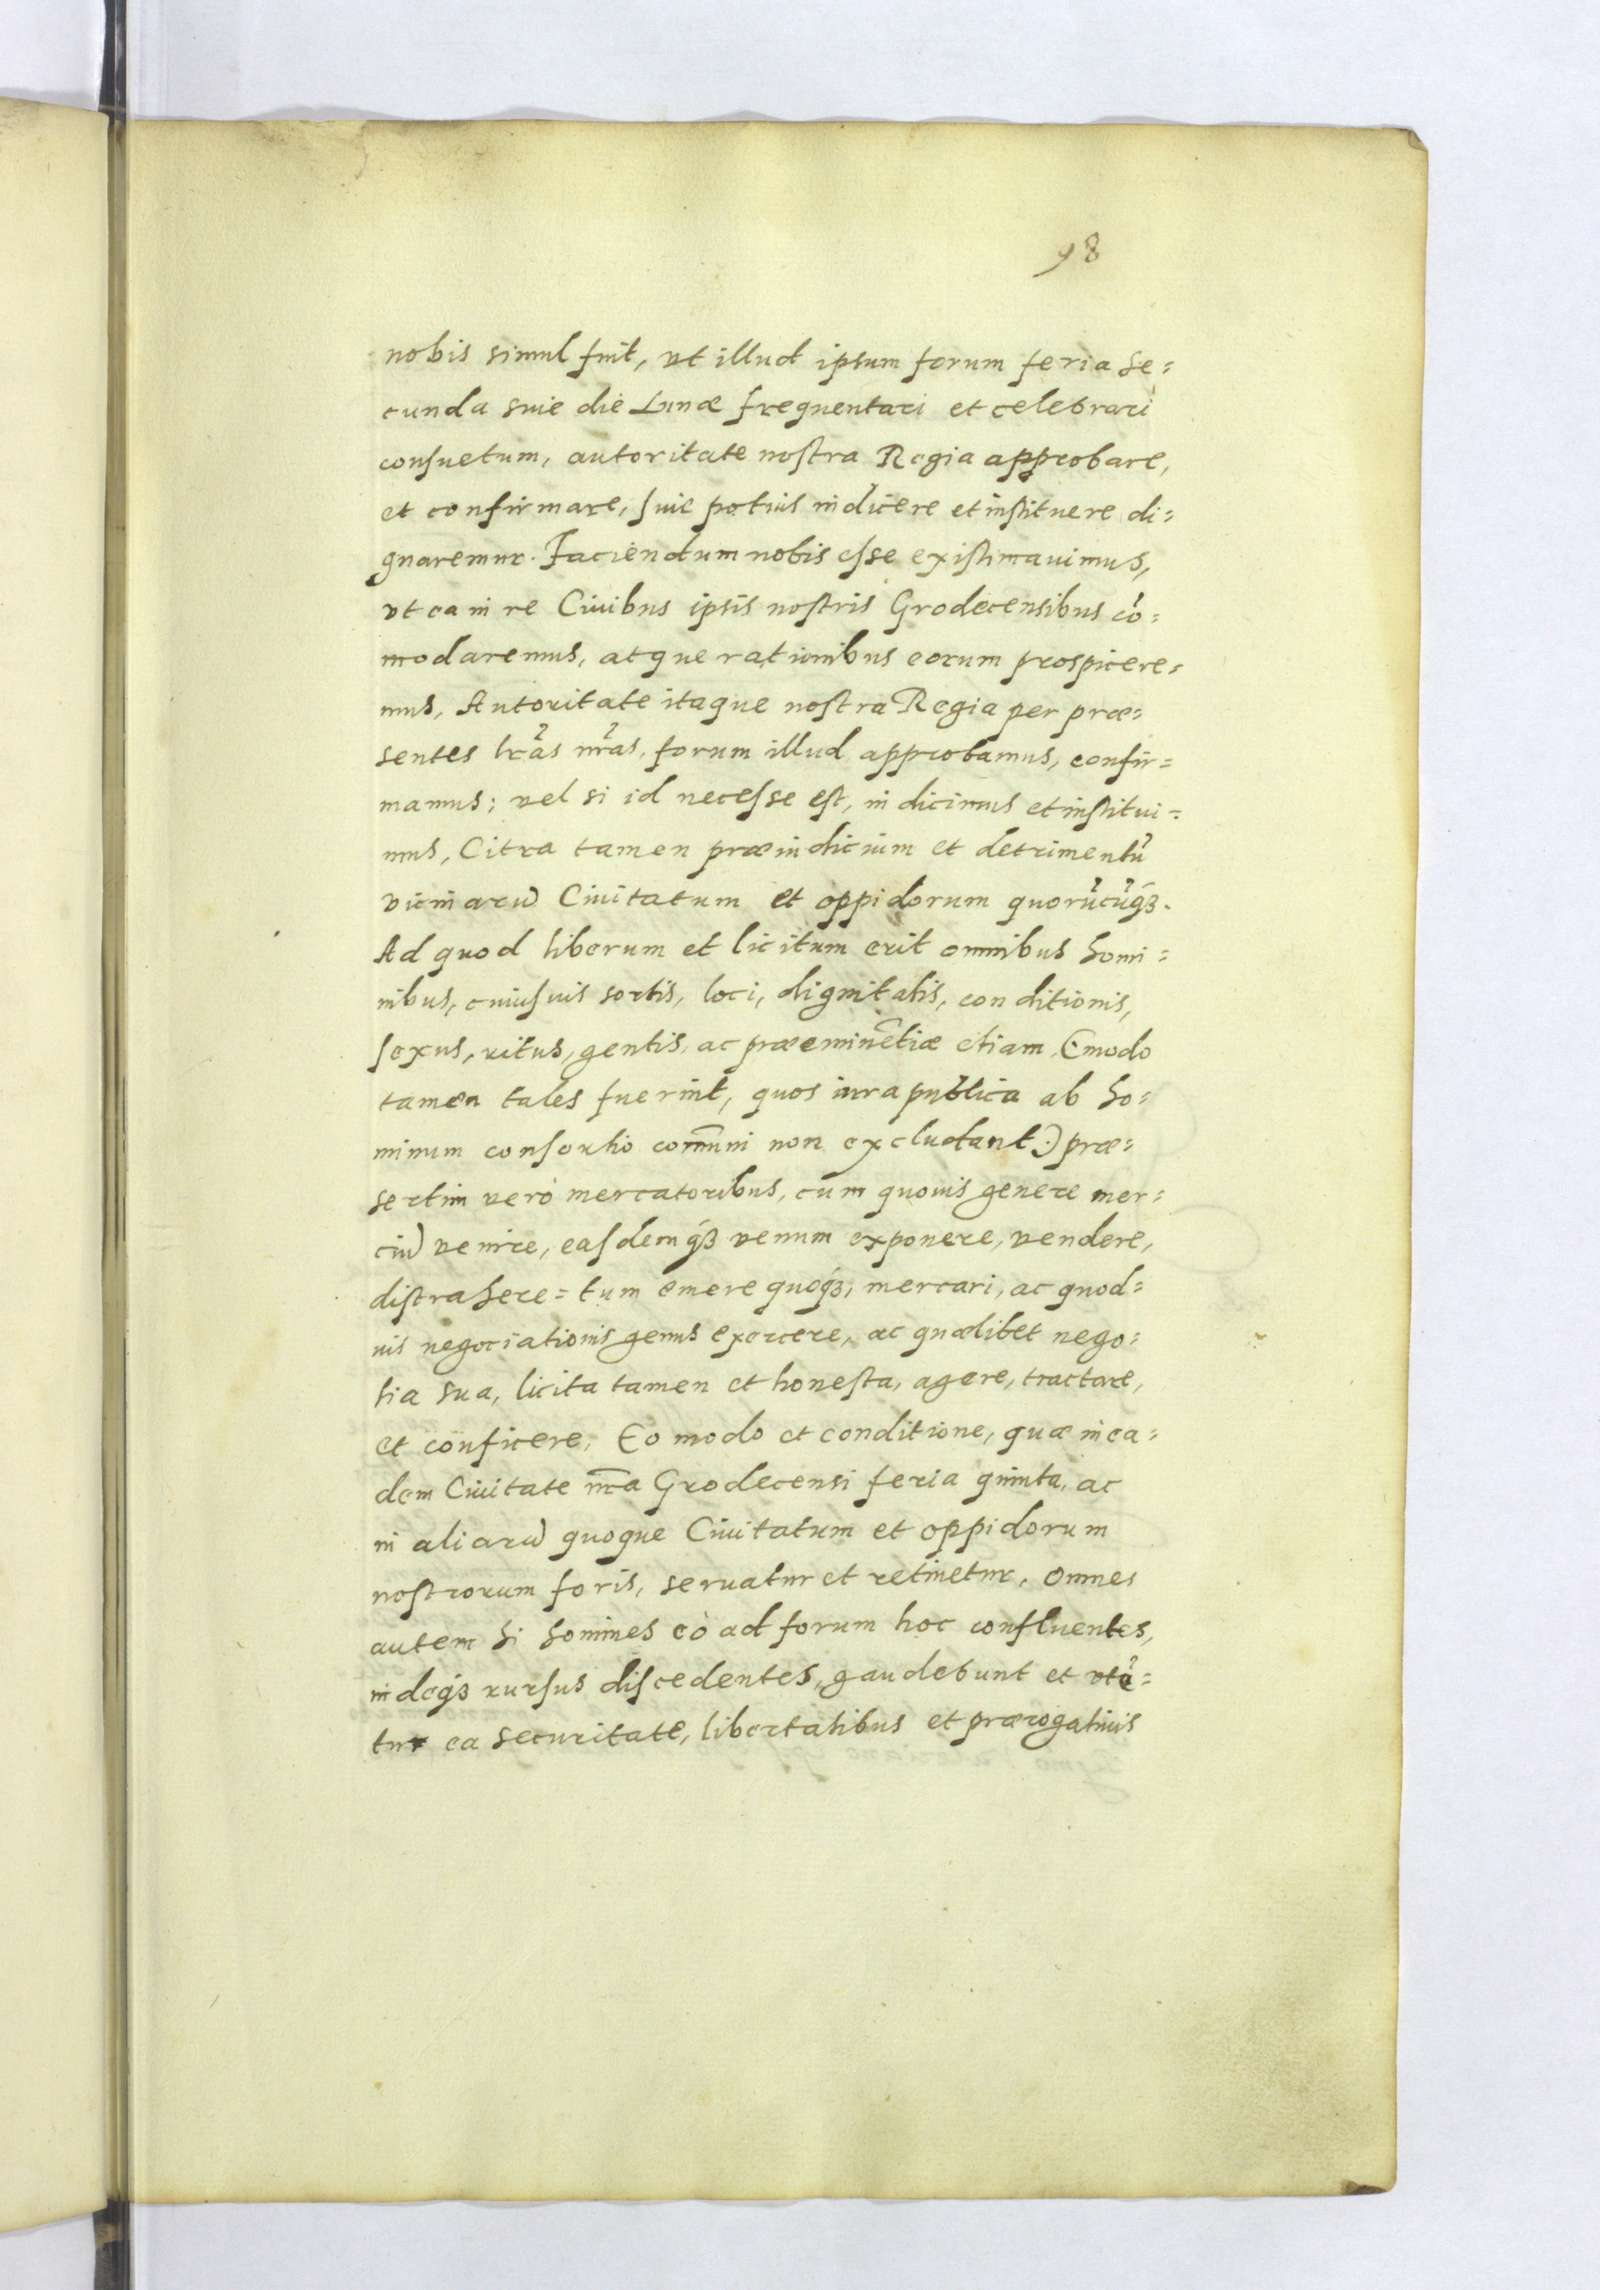 98
nobis simul fuit, vt illud ipsum forum feria se=
cunda siue die Lunæ frequentari et celebrari
consuetum, autoritate nostra Regia approbare,
et confirmare, siue potius indicere et instituere di=
gnaremur. Faciendum nobis esse existimauimus,
vt ea in re Ciuibus ipsis nostris Grodecensibus cõ=
modaremus, atque rationibus eorum prospicere=
mus, Autoritate itaque nostra Regia per præ=
sentes lr̃as nr̃as, forum illud approbamus, confir=
mamus; vel si id necesse est, indicimus et institui=
mus, Citra tamen præiudicium et detrimentũ
vicinarũ Ciuitatum et oppidorum quorũcũq́ꝫ.
Ad quod liberum et licitum erit omnibus homi=
nibus, cuiusuis sortis, loci, dignitatis, conditionis,
sexus, ritus, gentis, ac præeminẽtiæ etiam (modo
tamen tales fuerint, quos iura publica ab ho=
minum consortio com̃uni non excludant.) præ=
sertim verò mercatoribus, cum quouis genere mer=
ciũ venire, easdemq́ꝫ venum exponere, vendere,
distrahere= tum emere quoq́ꝫ, mercari, ac quod=
uis negociationis genus exercere, ac quælibet nego=
tia sua, licita tamen et honesta, agere, tractare,
et conficere, Eo modo et conditione, quæ in ea=
dem Ciuitate nr̃a Grodecensi feria quinta, ac
in aliarũ quoque Ciuitatum et oppidorum
nostrorum foris, seruatur et retinetur. Omnes
autem hi homines eò ad forum hoc confluentes,
indeq́ꝫ rursus discedentes, gaudebunt et vtẽ=
tur ea securitate, libertatibus et prærogatiuis